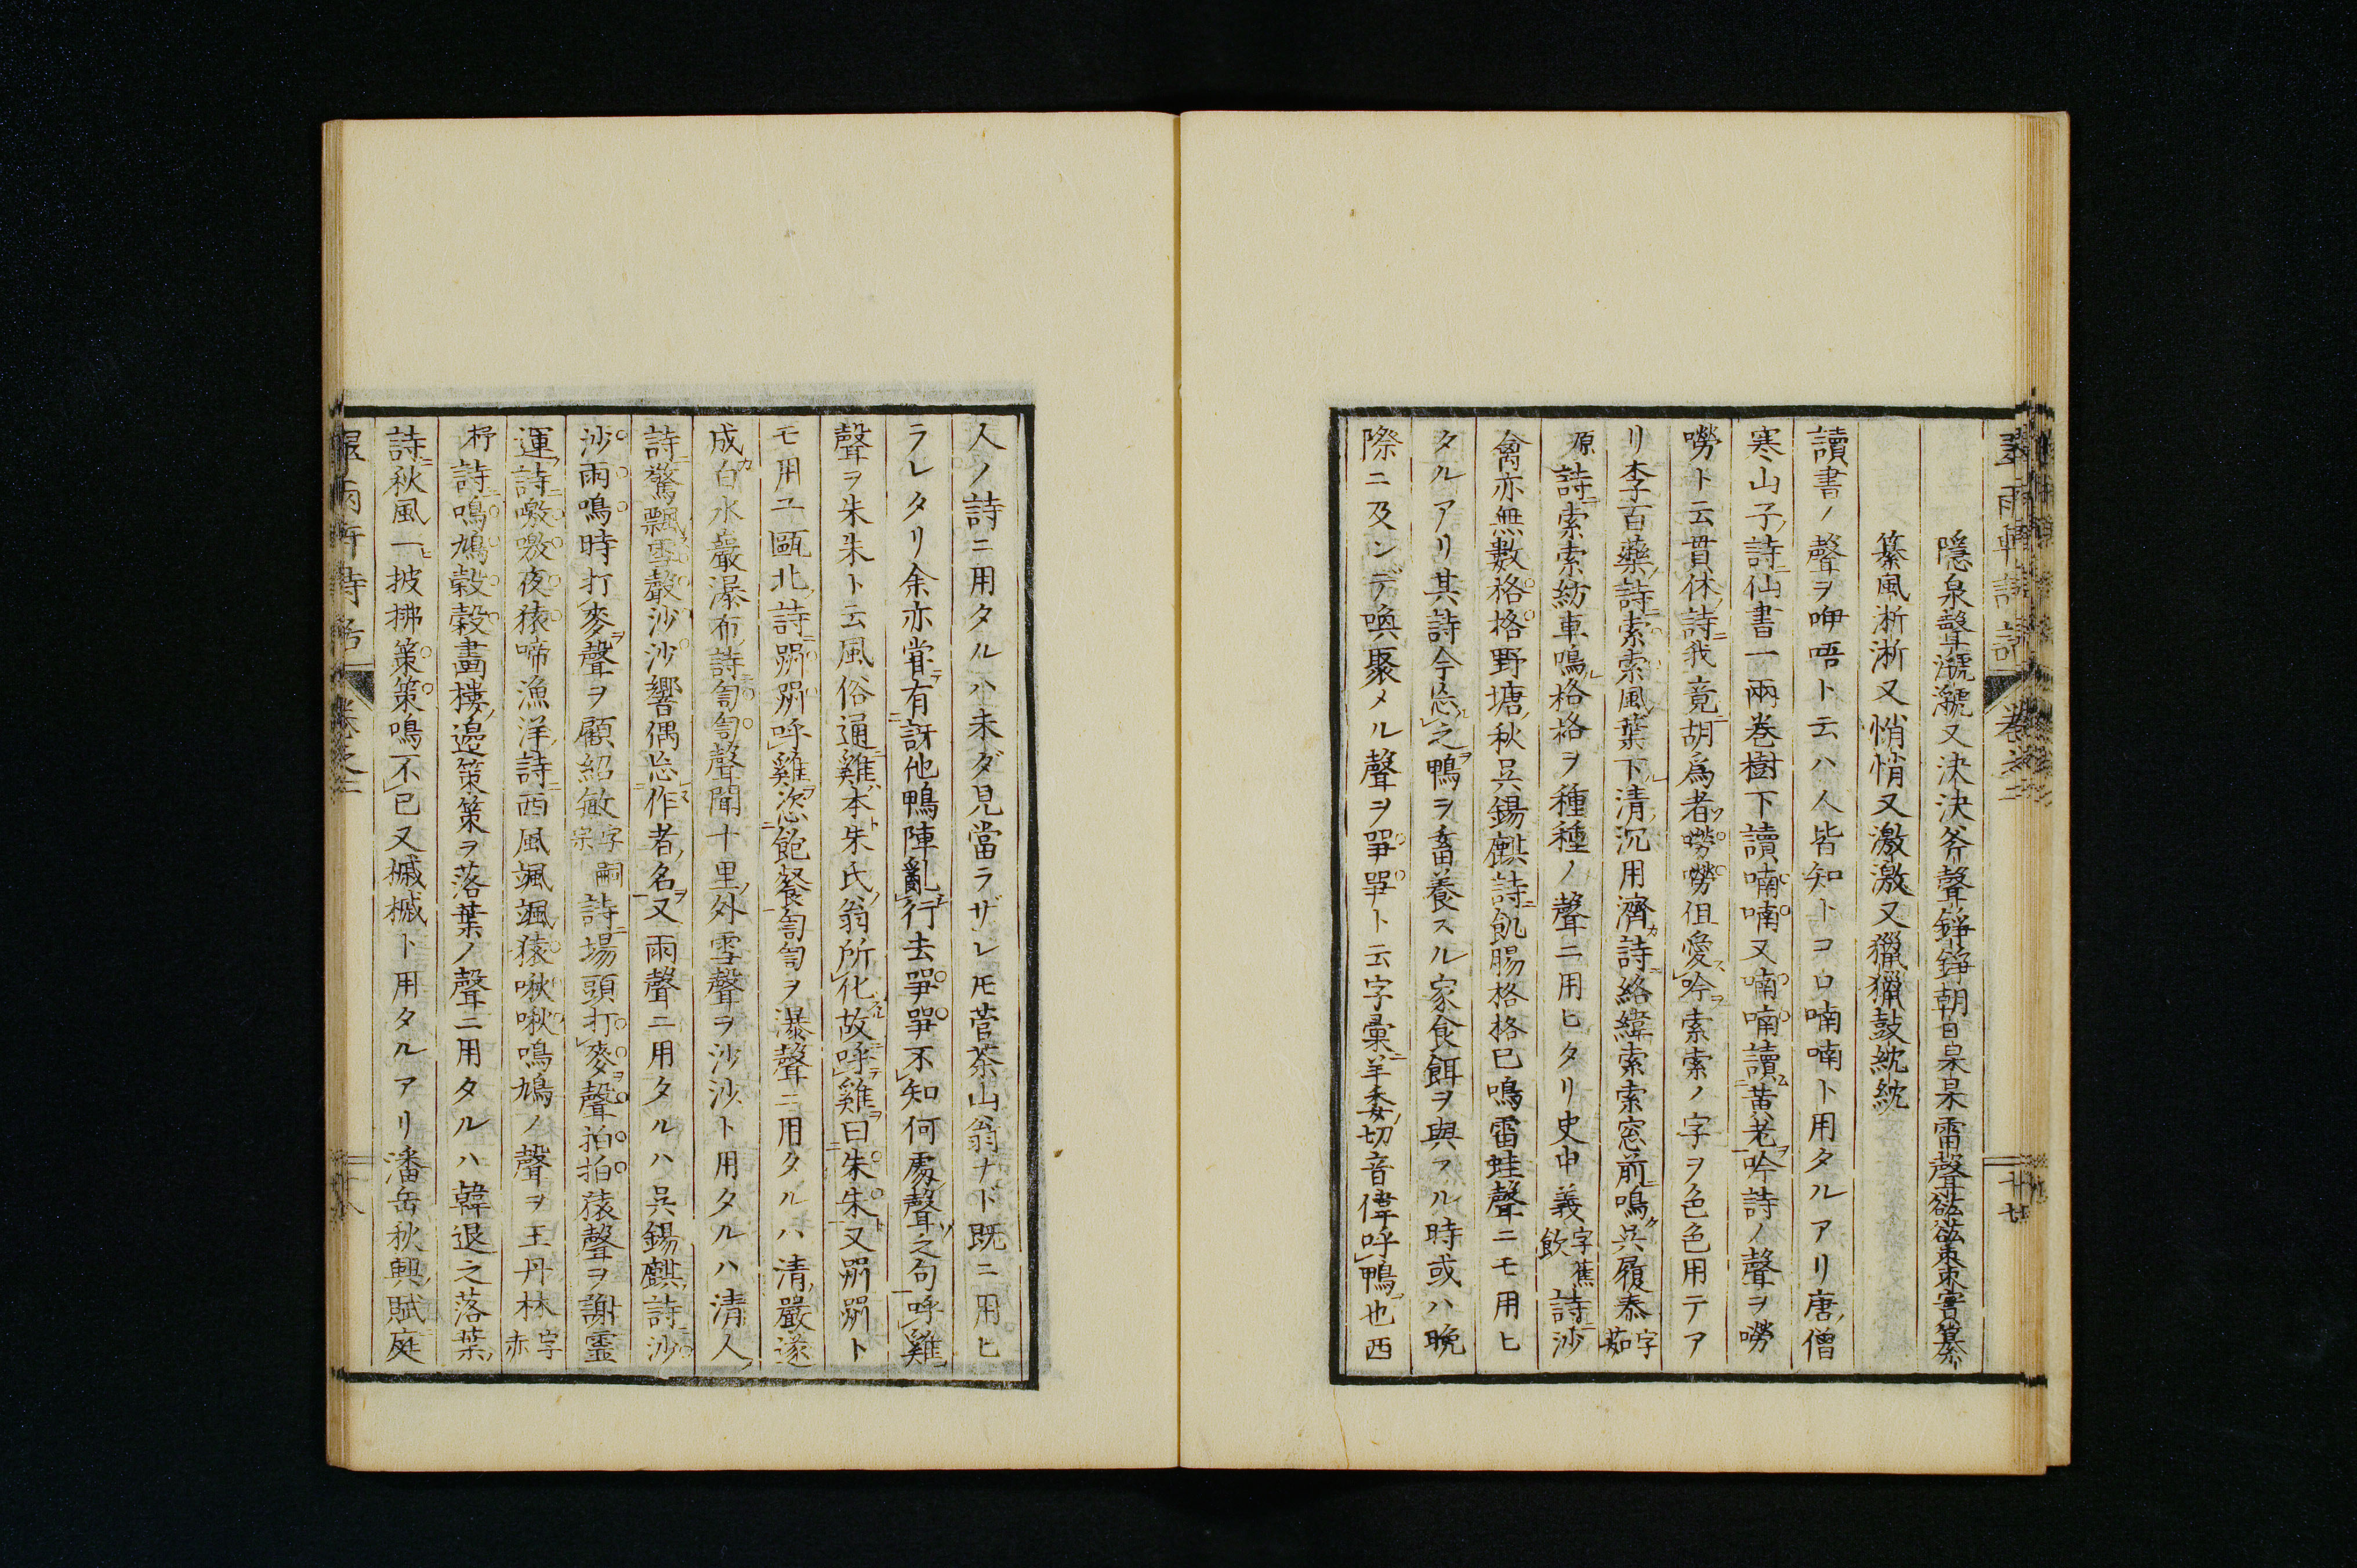 隱泉聲㶁㶁又決決斧聲錚錚朝日杲杲雷聲
纂風淅淅又悄悄又激激又獵獵鼓紞紞
讀書ノ聲ヲ咿唔ト云ハ人皆知トコロ喃喃ト用タルアリ唐僧
寒山子詩仙書一兩巻樹下讀喃喃又喃喃讀黃老吟詩ノ聲ヲ嘮
嘮ト云貫休詩我竟胡爲者嘮嘮但愛吟索索ノ字ヲ色色用テア
リ李百藥詩索索風葉下清沉用濟詩絡緯索索窓前鳴吳履泰字茹
原詩索索紡車鳴格格ヲ種種ノ聲ニ用ヒタリ史申義字蕉飲詩沙
禽亦無數格格野塘秋吳錫麒詩飢腸格格已鳴雷蛙聲ニモ用ヒ
タルアリ其詩今忘之鴨ヲ畜養スル家食餌ヲ與フル時或ハ晩
際ニ及ンデ喚聚メル聲ヲ䍣䍣ト云字彙羊委切音偉呼鴨也西
人ノ詩ニ用タルハ未ダ見當ラザレ𪜈菅茶山翁ナド既ニ用ヒ
ラレタリ余亦嘗有訝他鴨陣亂行去䍣䍣不知何處聲之句呼雞
聲ヲ朱朱ト云風俗通雞本朱氏翁所化故呼雞曰朱朱又喌喌ト
モ用ユ甌北詩喌喌呼雞恣飽餐訇訇ヲ瀑聲ニ用タルハ清嚴遂
成白水巖瀑布詩訇訇聲聞十里外雪聲ヲ沙沙ト用タルハ清人
詩驚飄雪聲沙沙響偶忘作者名又雨聲ニ用タルハ吳錫麒詩沙
沙雨鳴時打麥聲ヲ顧紹敏字嗣宗詩場頭打麥聲拍拍猿聲ヲ謝靈
運詩噭噭夜猿啼漁洋詩西風颯颯猿啾啾鳴鳩ノ聲ヲ王丹林字赤
杼詩鳴鳩穀穀畫樓邊策策ヲ落葉ノ聲ニ用タルハ韓退之落葉
詩秋風一披拂策策鳴不已又摵摵ト用タルアリ潘岳秋興賦庭